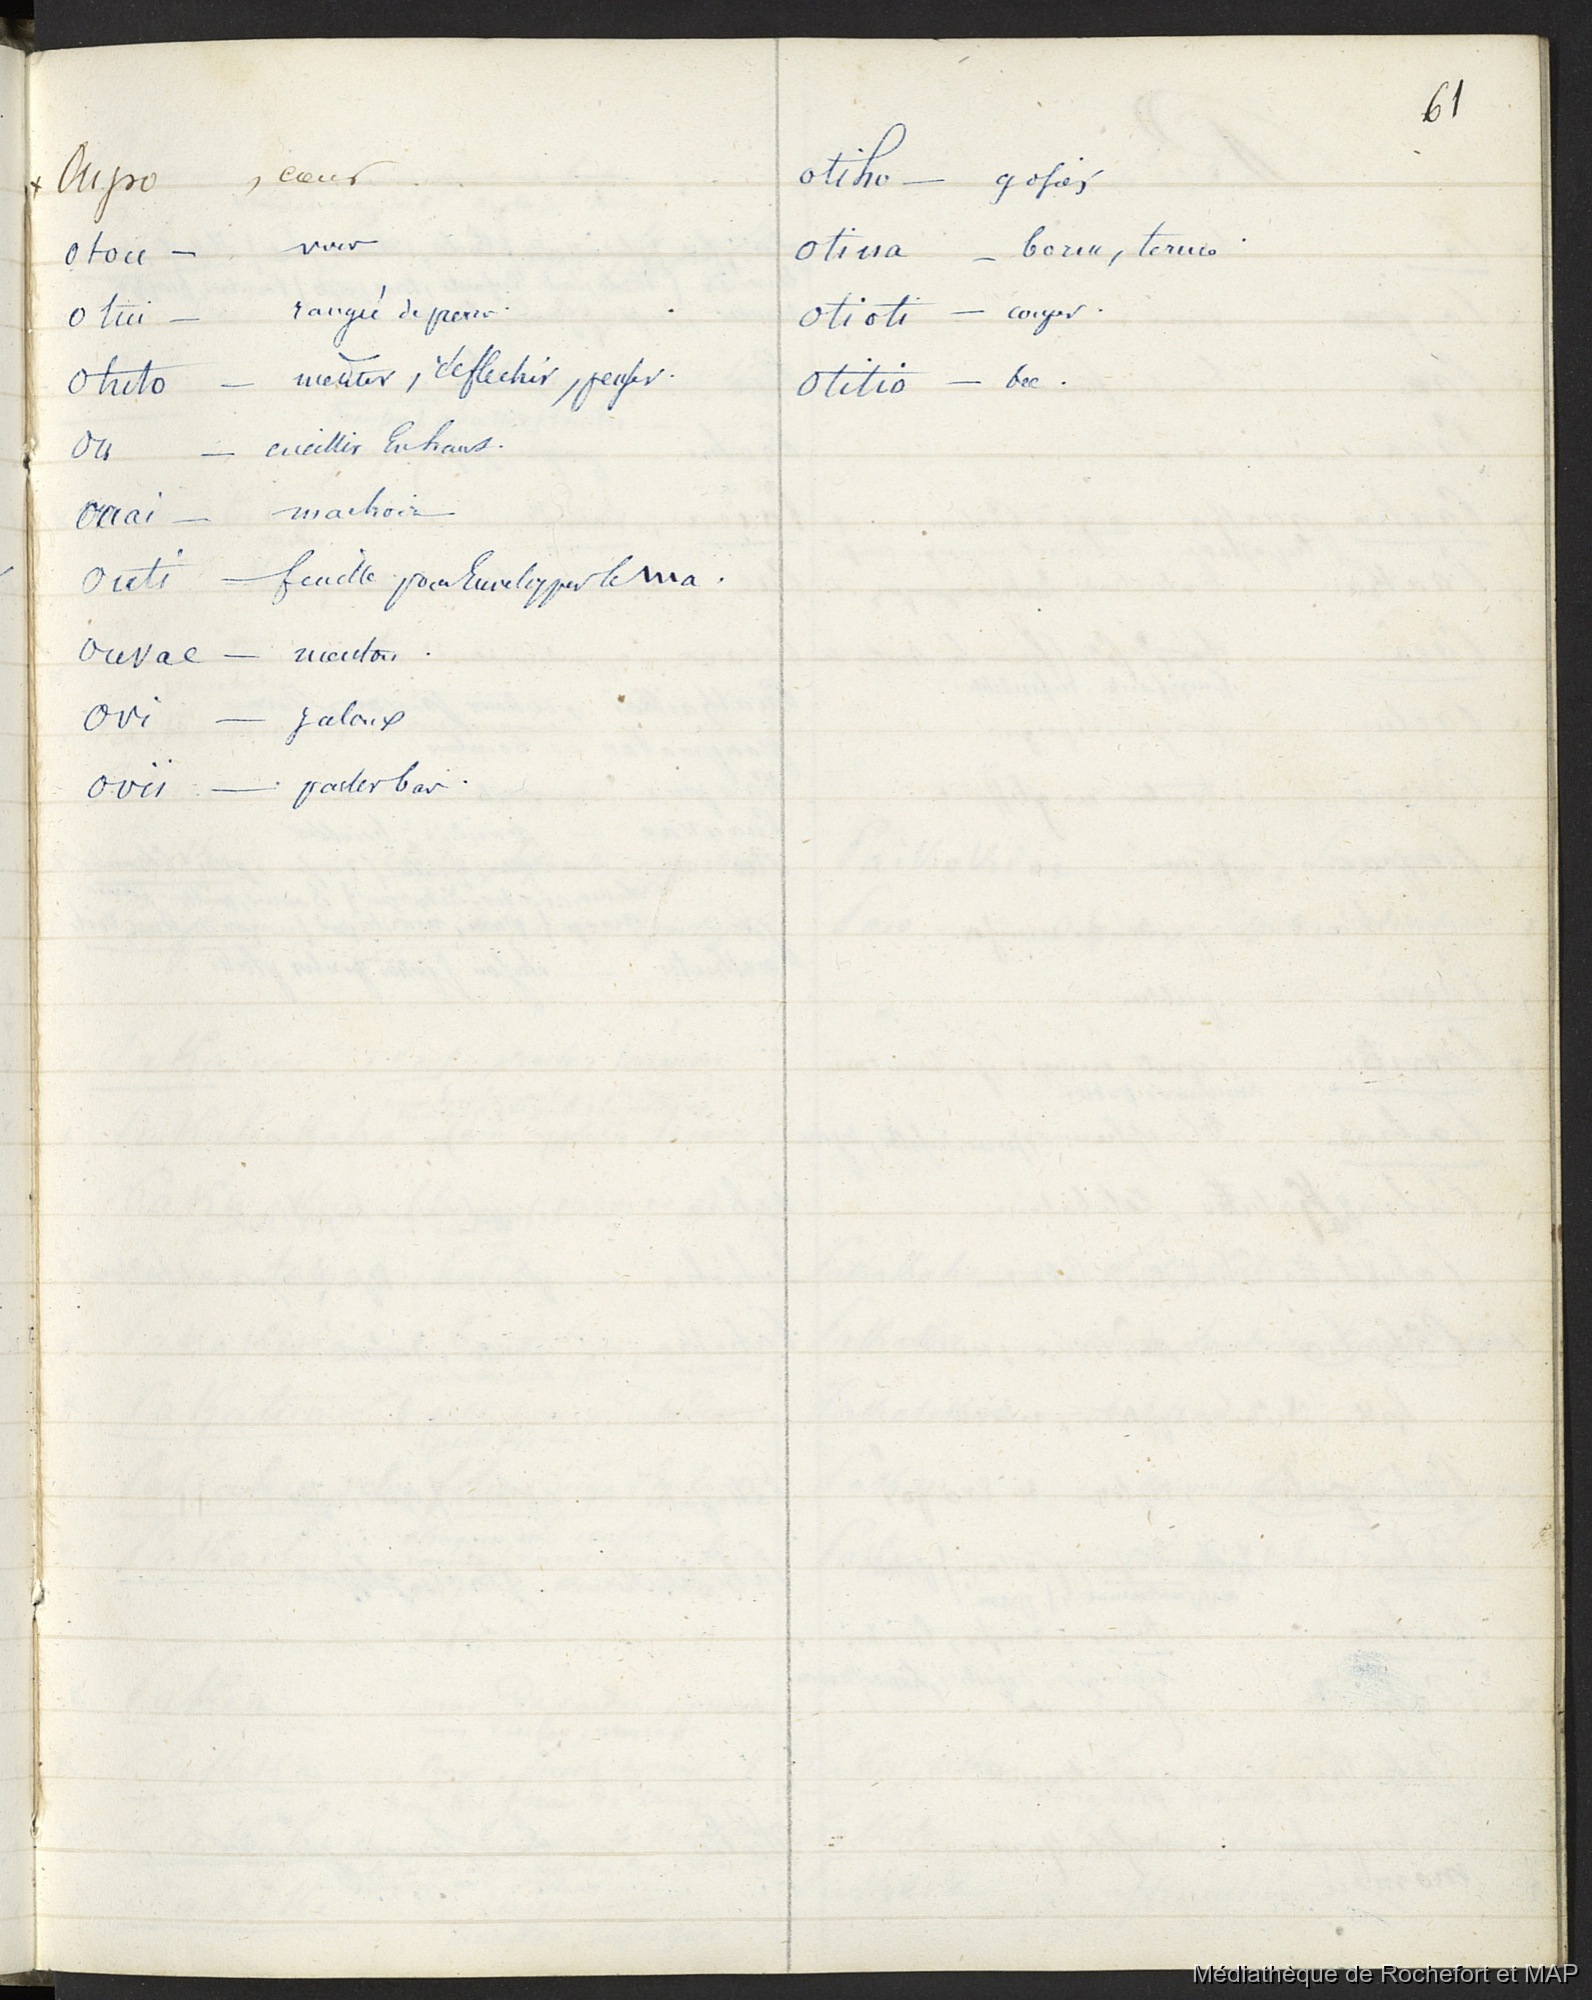 61
x Oupo , cœur
otou — voir
otui — rangée de pierres.
otuto — mediter, réflechir, penser.
ou — cueillir En haut.
ouai — machoire
outi — feuille pour Envelopper le ma.
ouvae — menton.
ovi — jaloux
ovii — parler bas.
otiho — gosier
otina — borne, terme.
otioti — couper.
otitio — bec.
Médiathèque de Rochefort et MAP